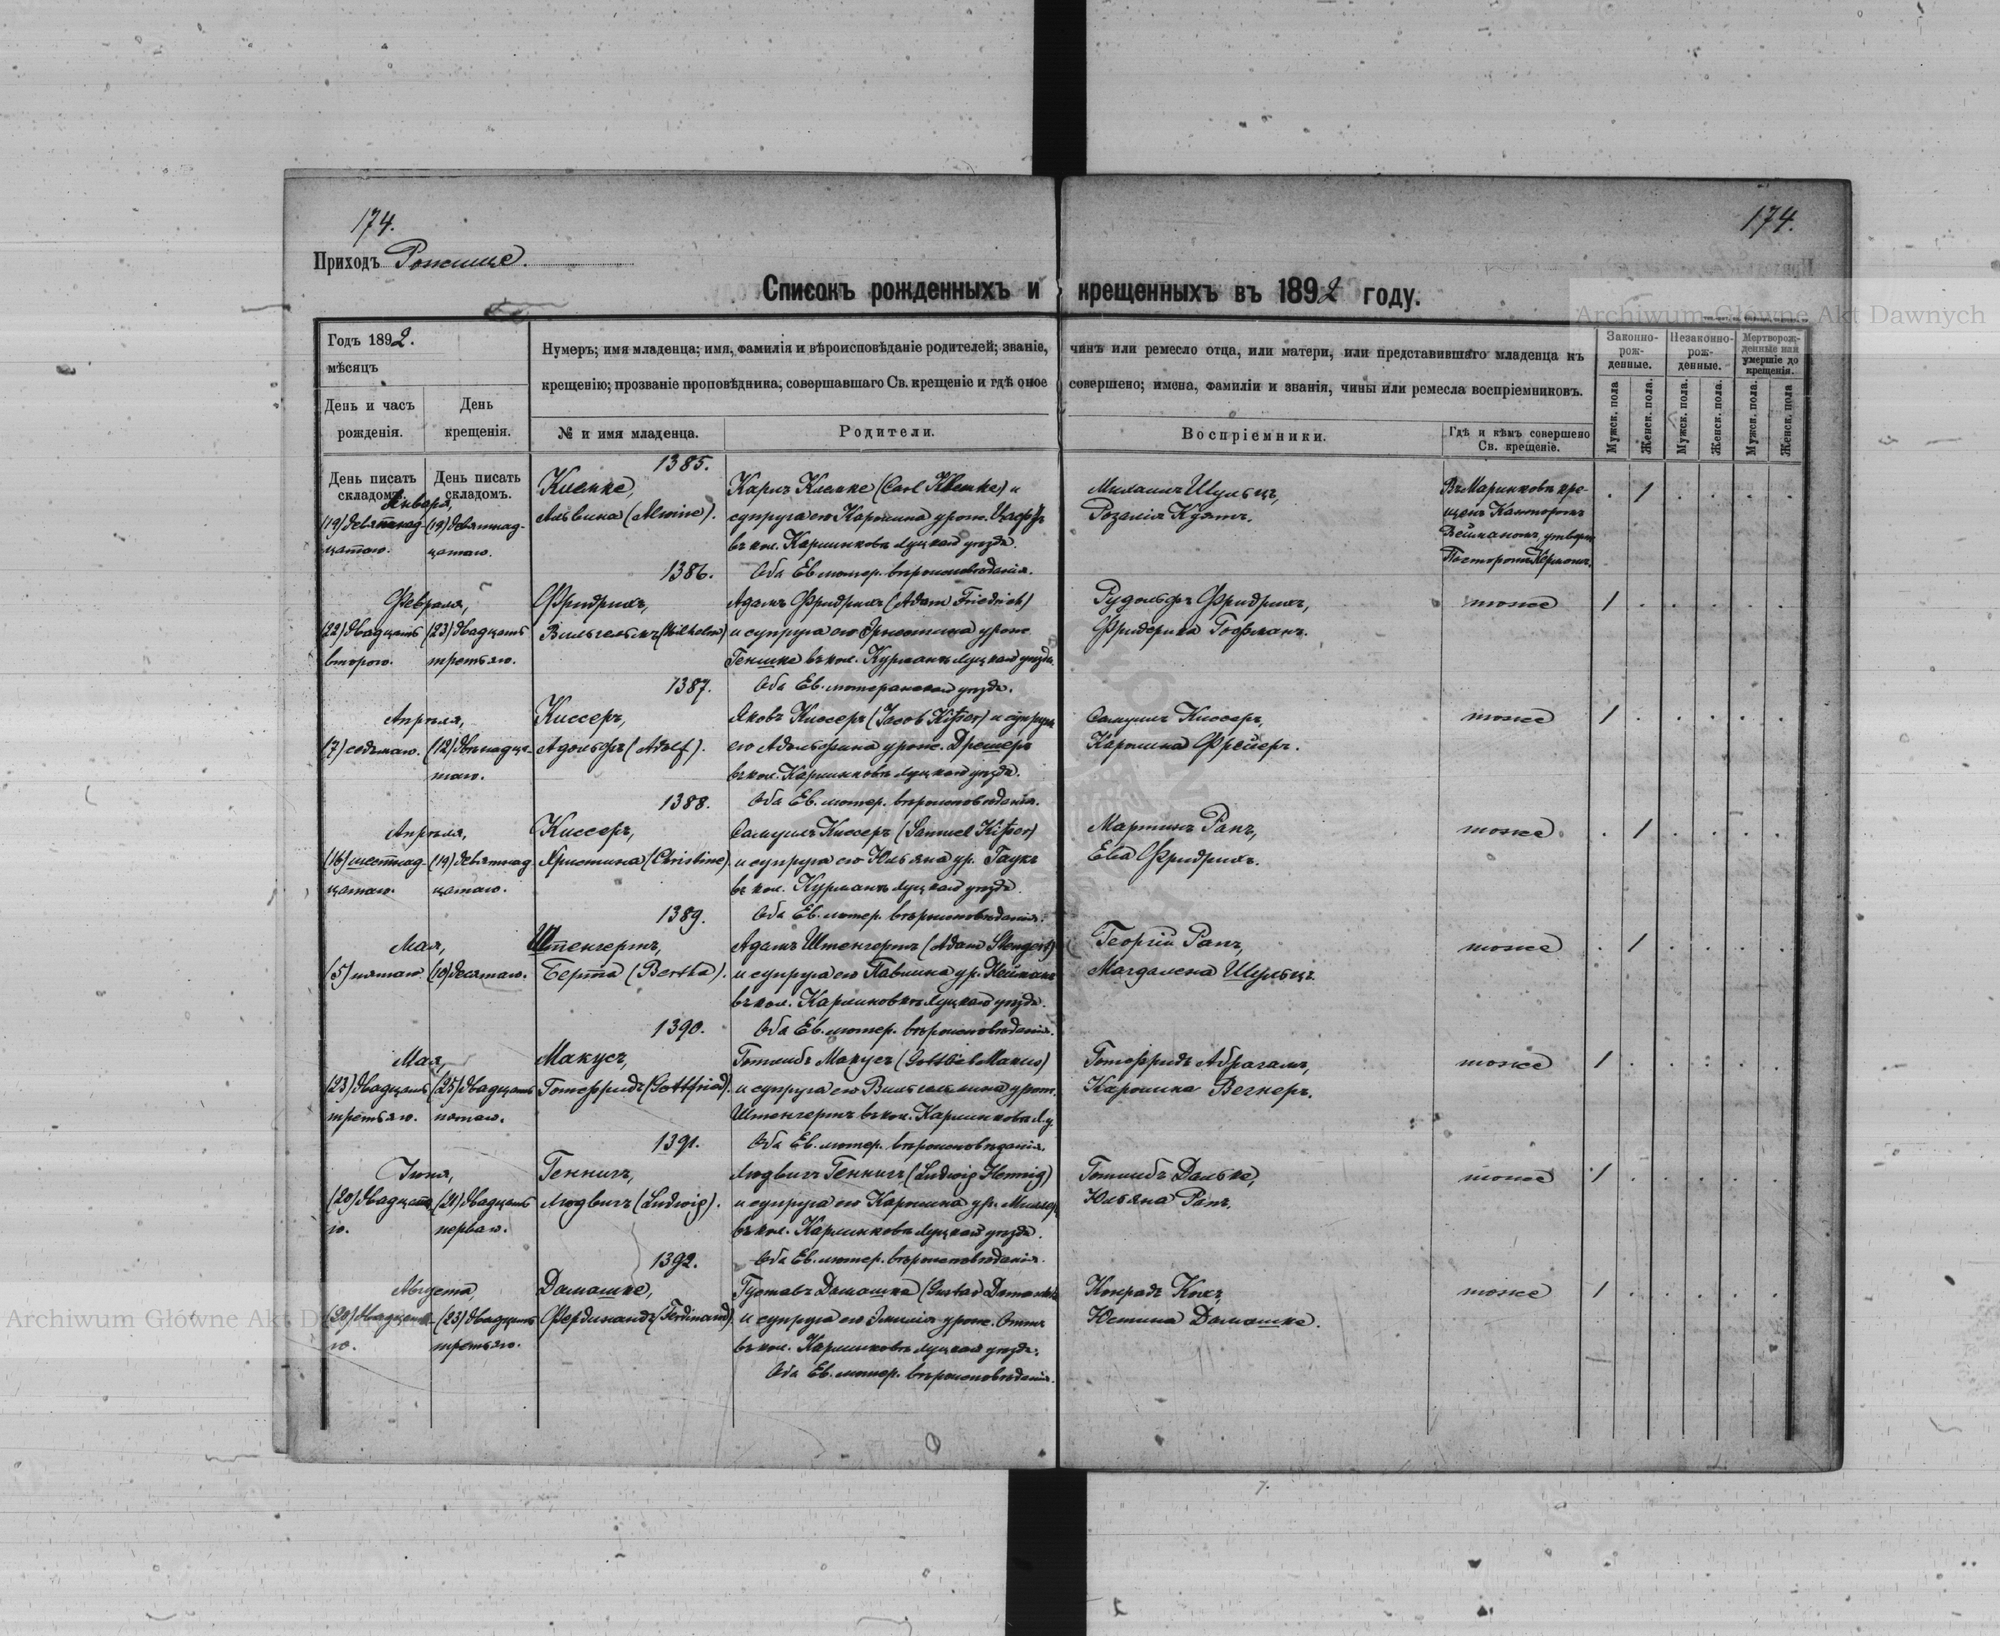 174.
174.
Приходъ Рожище.
Списокъ рожденныхъ и крещенныхъ въ 1892 году.
Годъ 1892.
мѣсяцъ
День и часъ рожденія.
День крещенія.
Нумеръ; имя младенца; имя, фамилія и вѣроисповѣданіе родителей; званіе, чинъ или ремесло отца, или матери, или представившаго младенца къ
крещенію; прозваніе проповѣдника, совершавшаго Св. крещеніе и гдѣ оное совершено; имена, фамиліи и званія, чины или ремесла воспріемниковъ.
№ и имя младенца.
Родители.
Воспріемники.
Гдѣ и кѣмъ совершено Св. крещеніе.
Законно-рож-денные.
Незаконно-рож-денные.
Мертворож-денные или умершіе до крещенія.
Мужск. пола
Женск. пола.
Мужск. пола.
Женск. пола.
Мужск. пола.
Женск. пола
День писать складомъ.
День писать складомъ.
1385.
Января,
(19) девятнад-
цатаго.
(19) девятнад-
цатаго.
Клемке,
Альвина (Alwine).
Карлъ Клемке (Carl Klemke) и
супруга его Каролина урож.
въ кол. Карлинковъ Луцкаго уѣзда.
Оба Ев. лютер. вѣроисповѣданія.
Михаилъ Шульцъ,
Розалія
кре-
щенъ Канторомъ
1
1386.
Февраля,
(22) двадцать
второго.
(23) двадцать
третьяго.
Фридрихъ,
Вильгельмъ (Wilhelm)
Адамъ Фридрихъ (Adam Friedrich)
и супруга его Эрнестина урож.
въ кол. Курманъ Луцкаго уѣзда.
Оба Ев. лютеранскаго
Рудольфъ Фридрихъ,
Фридерика Гофманъ.
тоже
1
1387.
Апрѣля,
(7) седьмаго.
(12) двѣнадца-
таго.
Киссеръ,
Адольфъ (Adolf).
Яковъ Киссеръ (Jacob Kißer) и супруга
его Адольфина урож. Дрешеръ
въ кол. Карлинковъ Луцкаго уѣзда.
Оба Ев. лютер. вѣроисповѣданія.
Самуилъ Киссеръ,
Каролина Фрейеръ.
тоже
1
1388.
Апрѣля,
(16) шестнад-
цатаго.
(19) девятнад
цатаго.
Киссеръ,
Христина (Christine)
Самуилъ Киссеръ (Samuel Kißer)
и супруга его Юльяна ур. Гаукъ
въ кол. Курманъ Луцкаго уѣзда.
Оба Ев. лютер. вѣроисповѣданія.
Мартинъ Рапъ,
Ева Фридрихъ.
тоже
1
1389.
Мая,
(5) пятаго
(10) десятаго.
Штенгертъ,
Берта (Bertha).
Адамъ Штенгертъ (Adam Stengert)
и супруга его Павлина ур. Нейманъ
въ кол. Карлинковъ Луцкаго уѣзда.
Оба Ев. лютер. вѣроисповѣданія.
Георгій Рапъ,
Магдалена Шульцъ.
тоже
1
1390.
Мая,
(23) двадцать
третьяго.
(25) двадцать
пятаго.
Макусъ,
Готфридъ (Gottfried).
Готлибъ Макусъ (Gottlieb Makus)
и супруга его Вильгельмина урож.
Штенгертъ въ кол. Карлинковъ Л.у.
Оба Ев. лютер. вѣроисповѣданія.
Готфридъ Абрагамъ,
Каролина Вегнеръ.
тоже
1
1391.
Іюня,
(20) двадцата-
го.
(21) двадцать
перваго.
Геннигъ,
Людвигъ (Ludwig).
Людвигъ Геннигъ (Ludwig Hennig)
и супруга его Каролина ур. Миллеръ
въ кол. Карлинковъ Луцкаго уѣзда.
Оба Ев. лютер. вѣроисповѣданія.
Готлибъ Дальке,
Юльяна Рапъ.
тоже
1
1392.
Августа,
(20) двадцата-
го.
(23) двадцать
третьяго.
Домашке,
Фердинандъ (Ferdinand)
Густавъ Домашке (Gustav Domaschke)
и супруга его Эмилія урож. Отто
въ кол. Карлинковъ Луцкаго уѣзда.
Оба Ев. лютер. вѣроисповѣданія.
Конрадъ Кохъ,
Юстина Домашке.
тоже
1
Archiwum Główne Akt Dawnych
Archiwum Główne Akt Dawnych